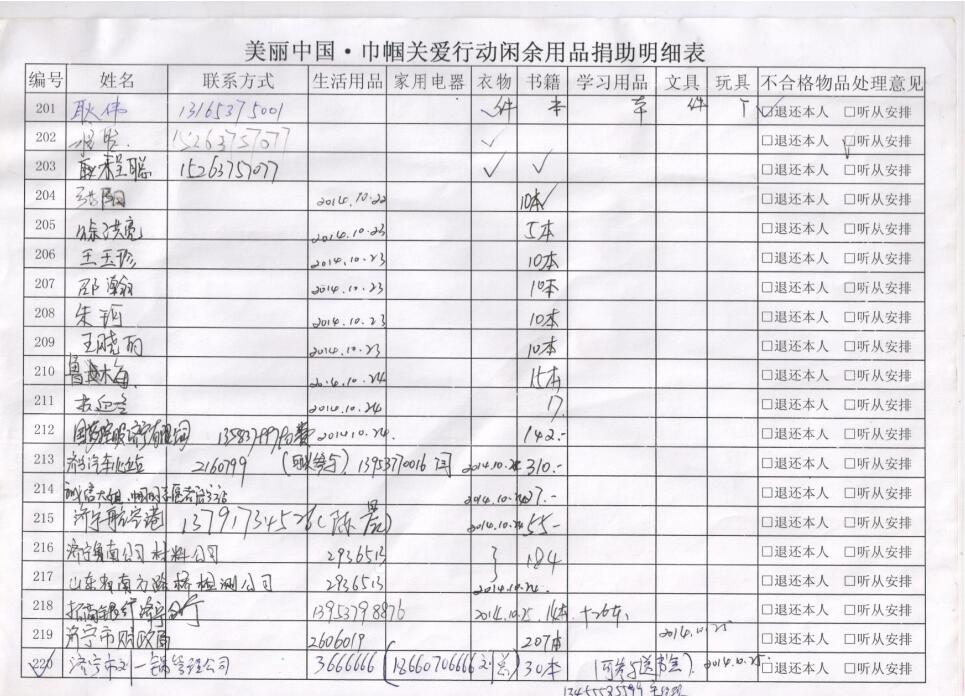 美丽中国·巾帼关爱行动闲余用品捐助明细表
编号 姓名 联系方式 生活用品 家用电器 衣物 书籍 学习用品 文具 玩具 不合格物品处理意见
201 耿伟 13165375001 ✓件 本 车 件 个 ☑退还本人 □听从安排
202 15263757077 ✓ □退还本人 ☑听从安排
203 耿程聪 15263757077 ✓ ✓ □退还本人 □听从安排
204 阳 2014.10.22 10本✓ □退还本人 □听从安排
205 徐洪亮 2014.10.23 5本 □退还本人 □听从安排
206 王玉珍 2014.10.23 10本 □退还本人 □听从安排
207 邵瀚 2014.10.23 10本 □退还本人 □听从安排
208 朱珂 2014.10.23 10本 □退还本人 □听从安排
209 王晓 2014.10.23 10本 □退还本人 □听从安排
210 鲁 海 2014.10.24 15本 □退还本人 □听从安排
211 2014.10.24 17. □退还本人 □听从安排
212 国药控股济宁有限公司 2014.10.24. 142.- □退还本人 □听从安排
213 济宁汽车北站 2160799 (可以参与) 13953770016 闫 2014.10.24 310.- □退还本人 □听从安排
214 诚信大姐 2014.10.24 27.- □退还本人 □听从安排
215 济宁航空港 13791734526(陈 ) 2014.10.24 55- □退还本人 □听从安排
216 济宁鲁南公司材料公司 2936513 } 184 □退还本人 □听从安排
217 山东鲁南方路桥检测公司 2936513 2014.10.24. □退还本人 □听从安排
218 招商银行济宁分行 13953798876 2014.10.25. 14本+26本. □退还本人 □听从安排
219 济宁市财政局 2606019 207本 2014.10.25 □退还本人 □听从安排
220 济宁市 管理公司 3666666 (18660706666 刘总) 30本 (可参与送书会) 2014.10.25. □退还本人 □听从安排
13455535599